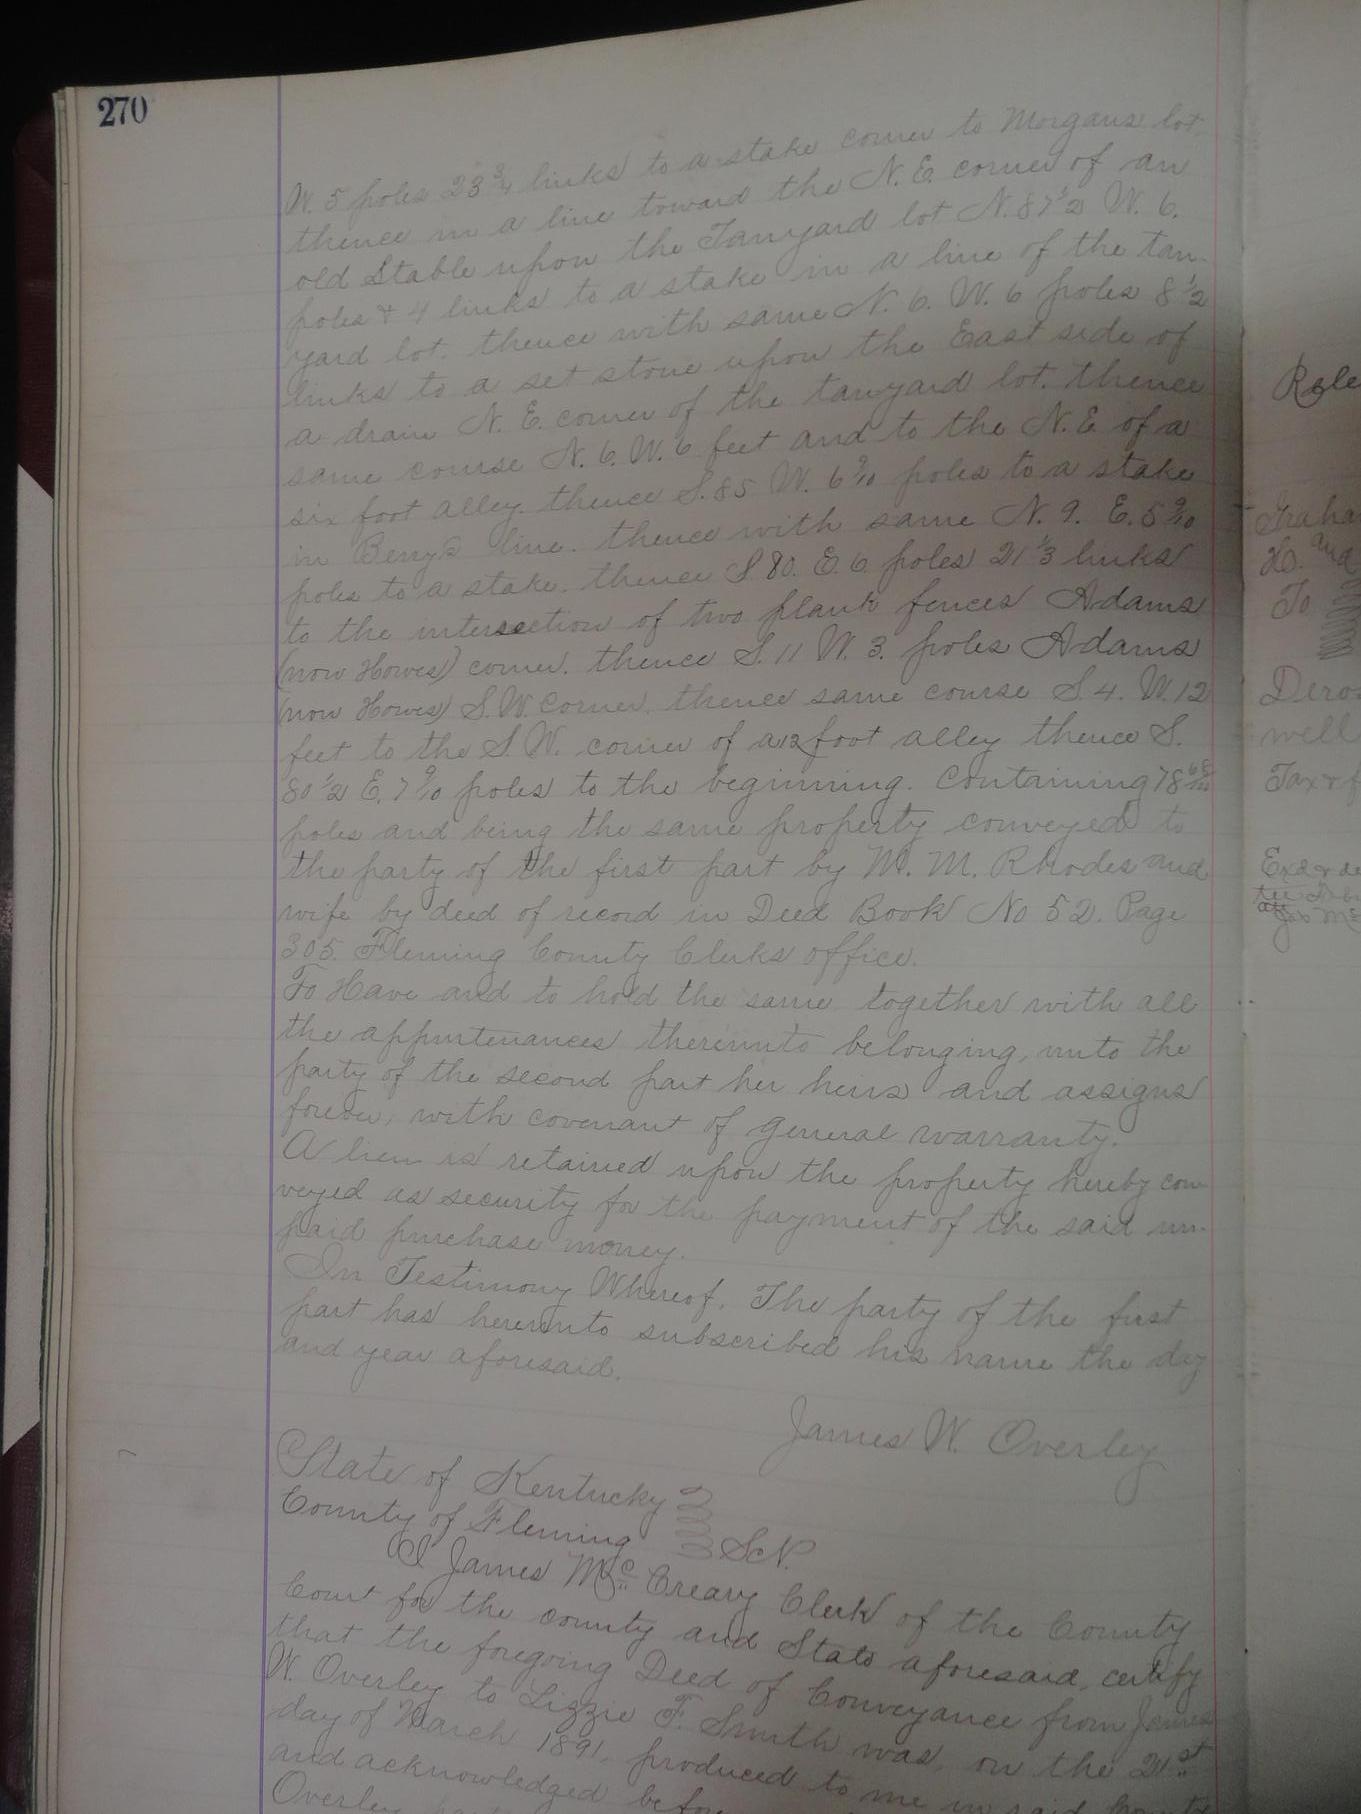 270
W. 5 poles 23 3/4 links to a stake corner to Morgans lot
thence in a line toward the N. E. corner of an
old Stable upon the Tanyard lot N. 87 1/2 W. 6.
poles & 4 links to a stake in a line of the tan-
yard lot. thence with same N. 6. W. 6 poles 8 1/2
links to a set stone upon the East side of
a drain N. E. corner of the tanyard lot. thence
same course N. 6. W. 6 feet and to the N. E. of a
six foot alley. thence S. 85 W. 6 9/10 poles to a stake
in Berrys line. thence with same N. 9. E. 5 9/10
poles to a stake. thence S 80. E. 6 poles 21 1/3 links
to the intersection of two plank fences Adams
(now Howes) corner. thence S. 11 W. 3. poles Adams
(now Howes) S. W. Corner. thence same course S. 4. W. 12
feet to the S. W. corner of a 12 foot alley thence S.
80 1/2 E. 7 9/10 poles to the beginning. Containing 78 68/100
poles and being the same property conveyed to
the party of the first part by M. M. Rhodes and
wife by deed of record in Deed Book No 52. Page
305. Fleming County Clerks office.
To Have and to hold the same together with all
the appurtenances thereunto belonging, unto the
party of the second part her heirs and assigns
forever, with covenant of general warranty.
A lien is retained upon the property hereby con-
veyed as security for the payment of the said un-
paid purchase money.
In Testimony Whereof. The party of the first
part has hereunto subscribed his name the day
and year aforesaid.
James W. Overley
State of Kentucky
County of Fleming Sct.
I James McCreary Clerk of the County
Court for the county and State aforesaid, certify
that the foregoing Deed of Conveyance from James
W. Overley to Lizzie F. Smith was, on the 21st
day of March 1891. produced to me in said County
and acknowledged before
Overley
Rele
Graha
H. and
To
Dero
well
Tax & f
Exd & de